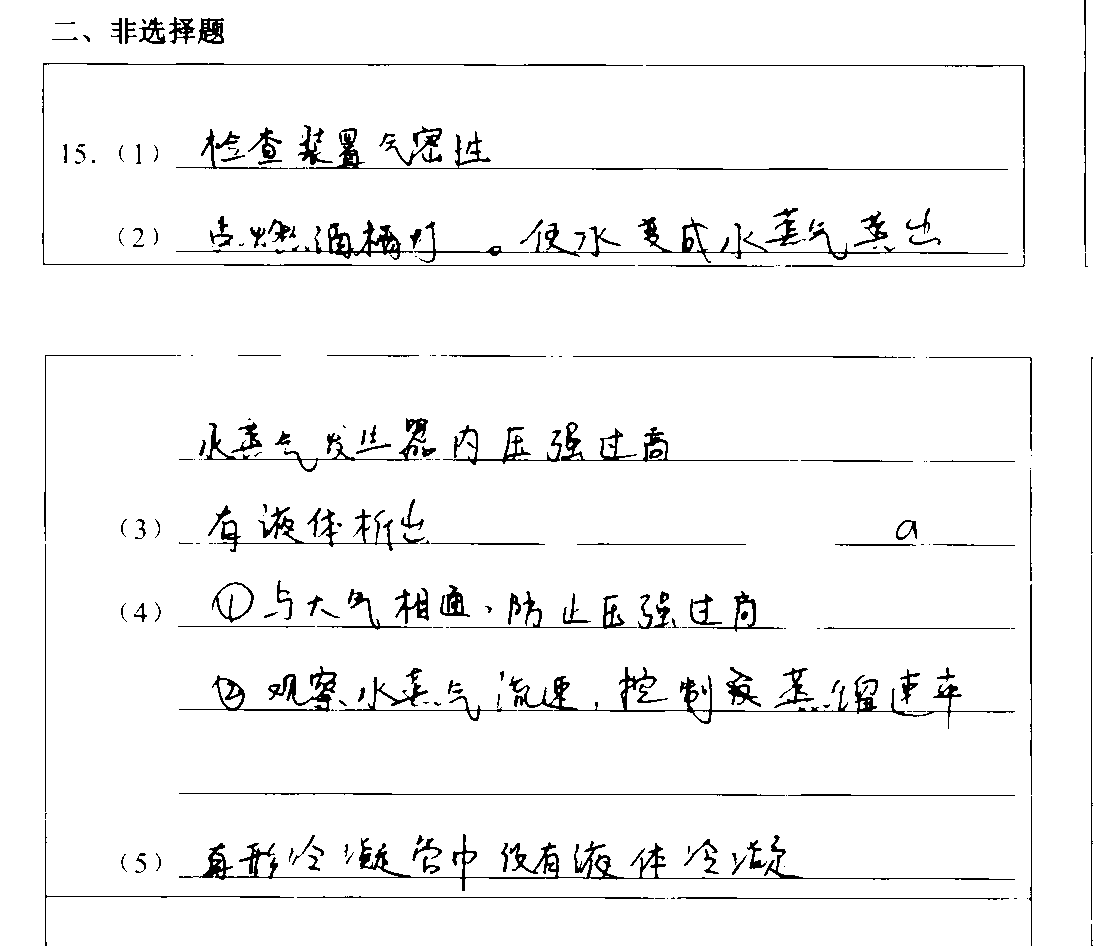 二、非选择题
15.（1）检查装置气密性
（2）点燃酒精灯。使水变成水蒸气蒸出
水蒸气发生器内压强过高
（3）有液体析出 a
（4）①与大气相通、防止压强过高
②观察水蒸气流速，控制蒸馏速率
（5）直形冷凝管中没有液体冷凝